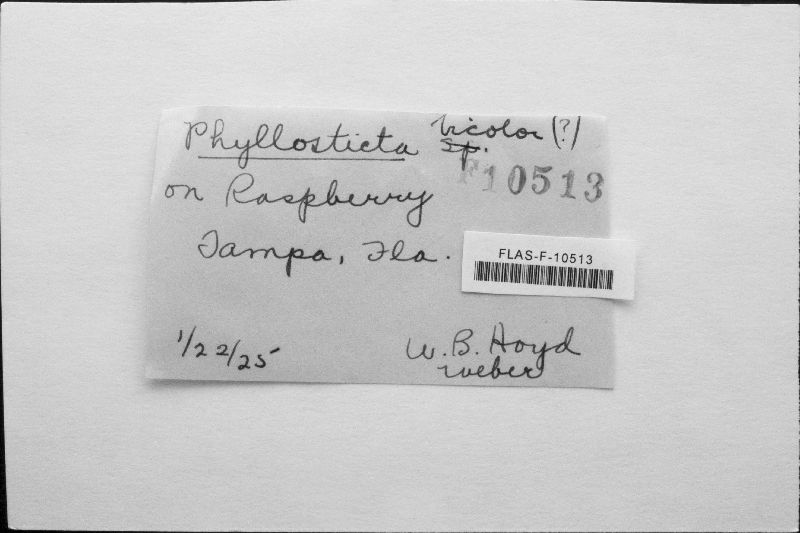 Phyllosticta bicolor (?)
sp.
F10513
on Raspberry
Tampa, Fla.
FLAS-F-10513
1/22/25
W. B. Hoyd
Weber